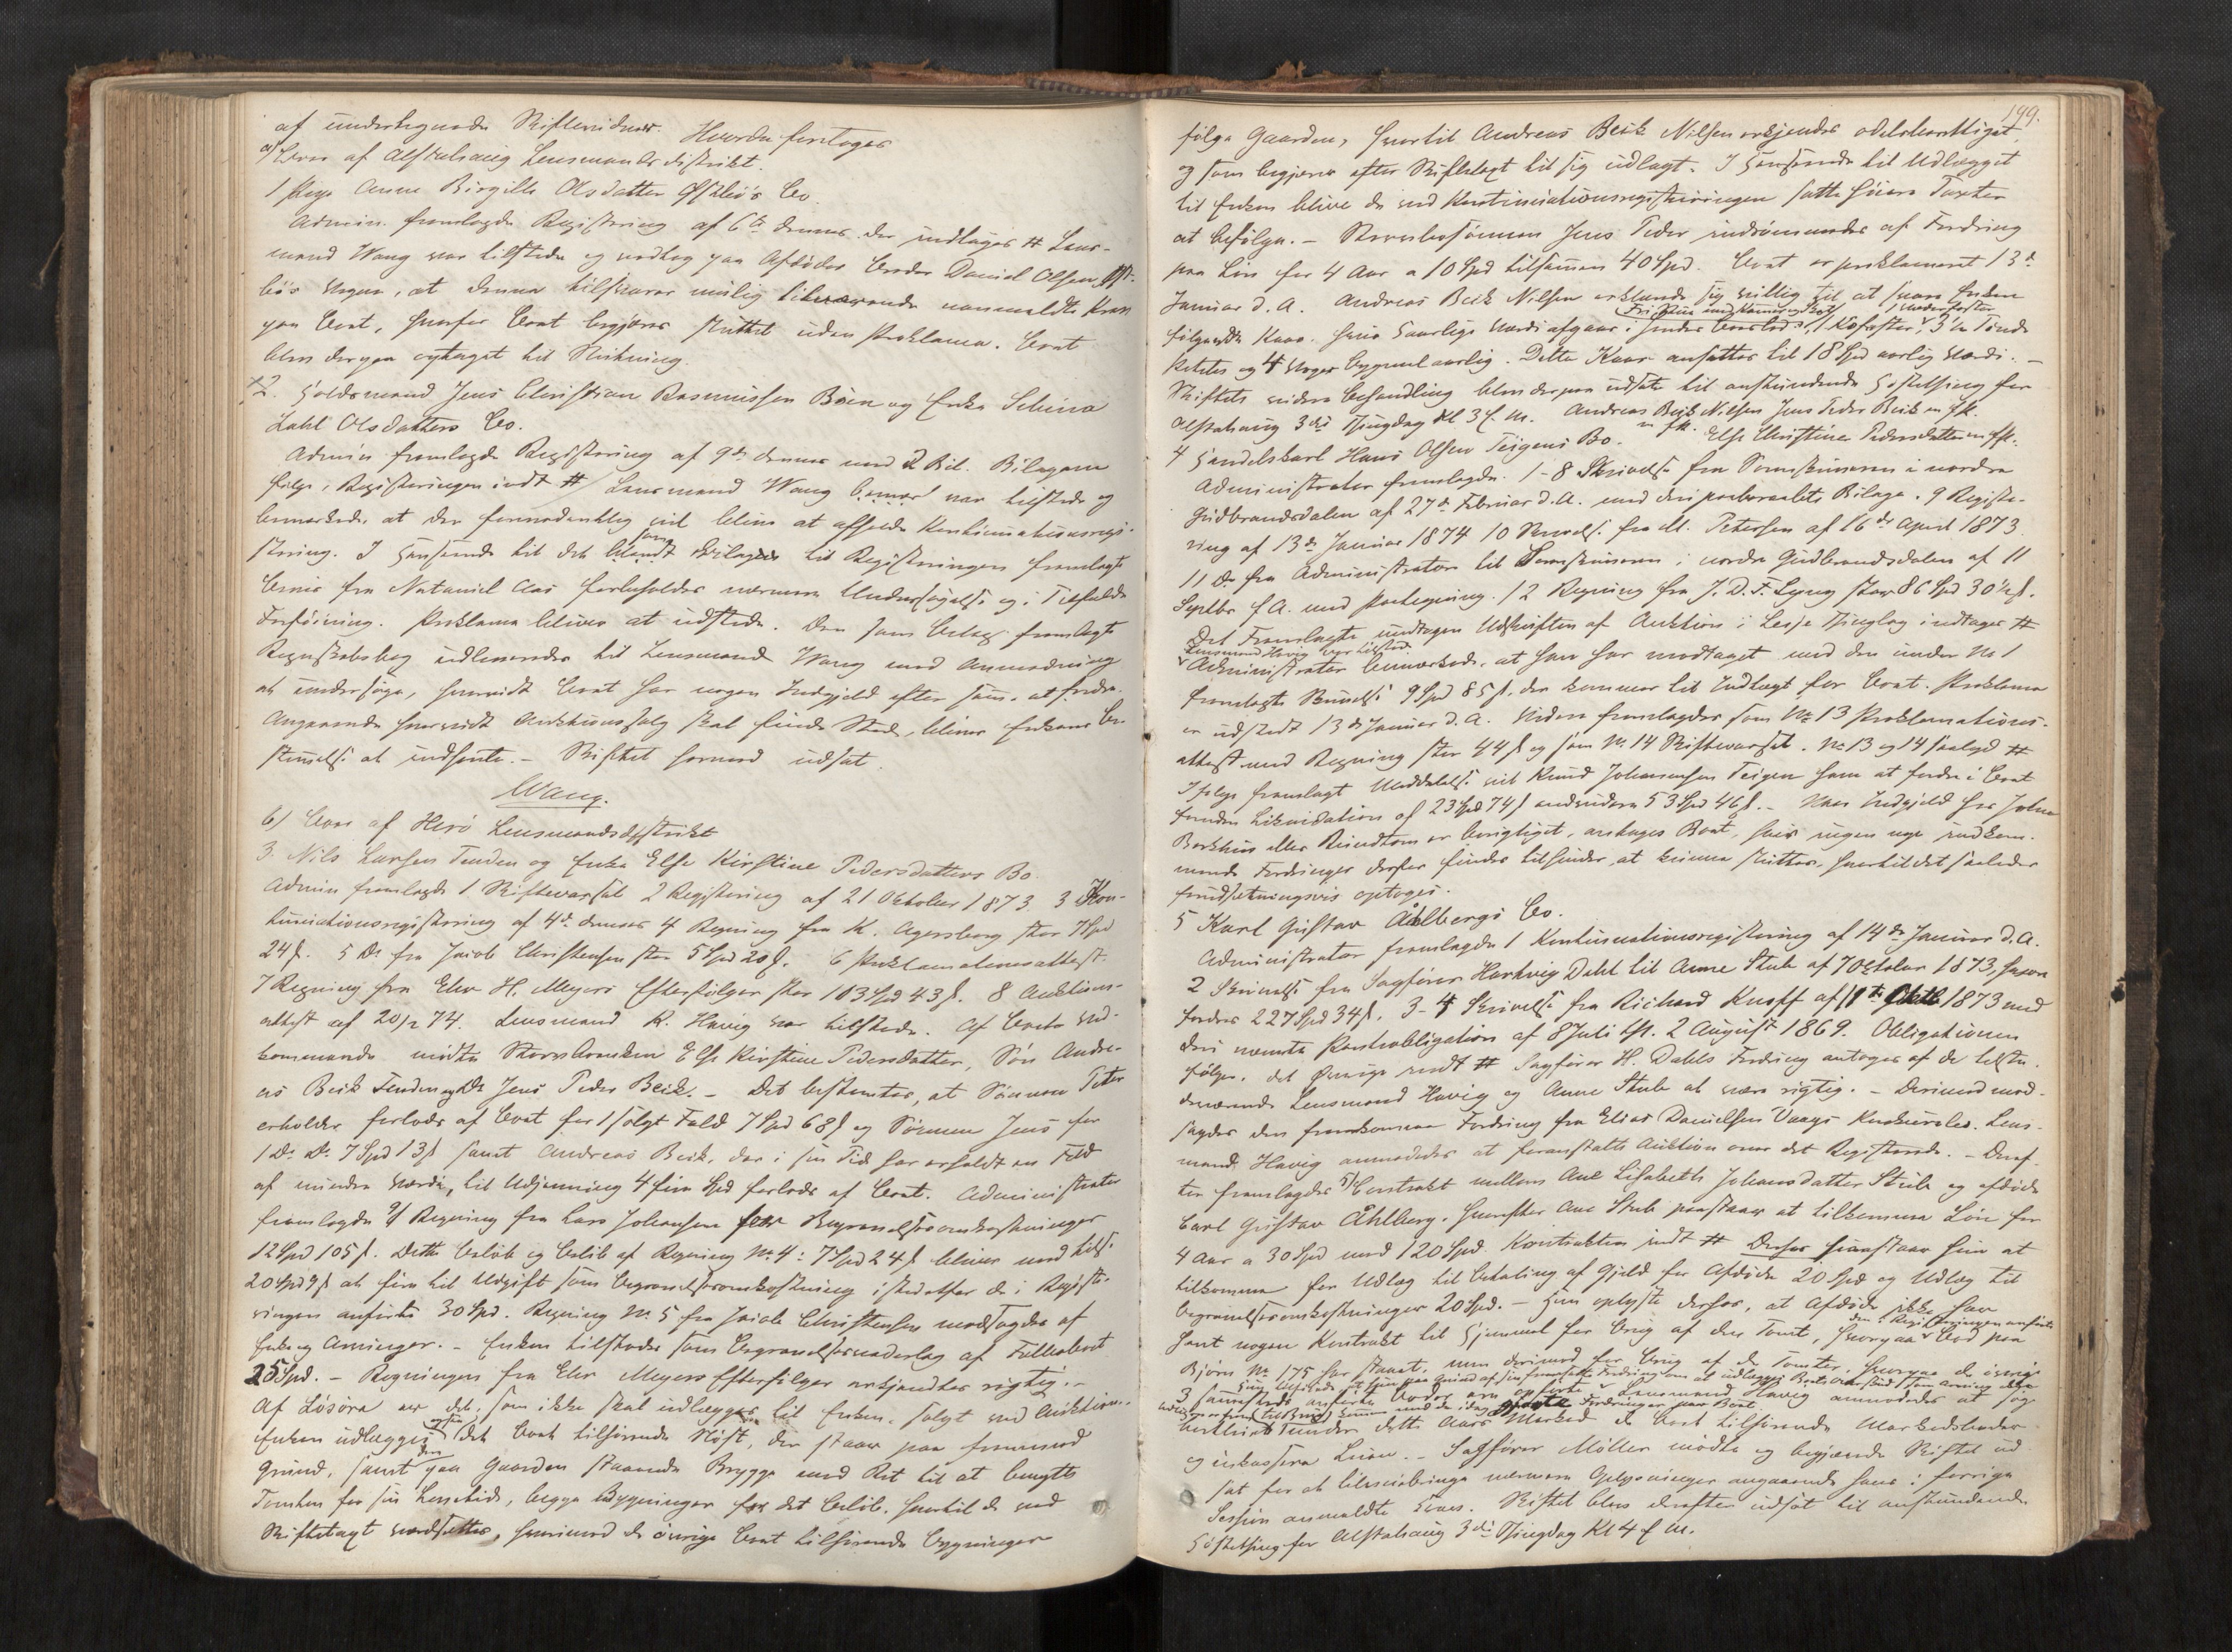 af undertegnede Skiftevidner. Hvorda foretoges
a) Boer af Alstahaug Lensmandsdistrikt.
1 Pige Anne Birgitte Olsdatter Bo.
Admin. fremlagde Registrering af 6te dennes der indtages # Lens-
mand Wang var tilstede og vedtog paa Afdødes Broder Daniel Olsen
Vegne, at denne tilsvarer mulig tilværende uanmeldte Krav
paa Boet, hvorfor Boet begjæres sluttet uden Proklama. Boet
blev derpaa optaget til Slutning.
2. Gaardmand Jens Christian Rasmussen Böen og Enke Selina
Zahl Olsdatters Bo.
Admin fremlagde Registrering af 9de dennes med 2 Bil. Bilagene
følge, Registreringen indt # Lensmand Wang var tilstede og
bemærkede, at der formodentlig vil blive at afholde Kontinuationsregi-
strering. I Henseende til det blandt Bilagene til Registreringen fremlagte
Bevis fra Nataniel forbeholdes nærmere Undersøgelse og i Tilfælde
Forføining. Proklama bliver at udstede. Den som Bilag fremlagte
Regnskabsbog udleveredes til Lensmand Wang med Anmodning
at undersøge, hvorvidt Boet har nogen Indgjeld efter samme at fordre.
Angaaende hvorvidt Auktionssalg skal finde Sted, bliver Enkens Be-
stemmelse at indhente. - Skiftet hermed udsat.
Wang.
b) Boer af Herö Lensmandsdistrikt
3. Nils Larsen Tenden og Enke Else Kirstine Pedersdatters Bo.
Admin fremlagde 1 Skiftevarsel 2 Registrering af 21 Oktober 1873. 3 Kon-
tinuationsregistrering af 4de dennes 4 Regning fra K. Agersborg stor 7 Spd
24 s. 5 Do fra Jacob Christensen stor 5 Spd 20 s. 6 Proklamationsattest.
7 Regning fra Ehv H. Meyers Efterfølger stor 103 Spd 43 s. 8 Auktions-
attest af 20/2 74. Lensmand K. Havig var tilstede. Af Boets Ved-
kommende mødte Stervboenken Else Kirstine Pedersdatter, Søn Andre-
as Beck Tenden og Do Jens Peder Beck. - Det bestemtes, at Sønnen Peter
erholder forlods af Boet for 1 solgt Fold 7 Spd 68 s og Sønnen Jens for
1 Do Do 7 Spd 13 s samt Andreas Beck, der i sin Tid har erholdt en Fold
af mindre Værdi, til Udjevning 4 fire Spd forlods af Boet. Administrator
fremlagde 9 Regning fra Lars Johansen for Begravelsesomkostninger
12 Spd 105 s. Dette Beløb og Beløb af Regning No 4: 7 Spd 24 s bliver med tils.
20 Spd 9 s at føre til Udgift som Begravelsesomkostning istedetfor de i Registre-
ringen anførte 30 Spd. Regning No 5 fra Jacob Christensen modsagdes af
Enke og Arvinger. - Enken tilstodes som Begravelsesvederlag af Fællesboet
25 Spd. - Regningen fra Ehv Meyers Efterfølger erkjendtes rigtig. -
Af Løsøre er det, som ikke skal udlægges til Enken, solgt ved Auktion.
Enken udlægges det Boet tilhørende Nøst, der staar paa fremmed
Grund, samt den paa Gaarden staaende Brygge med Ret til at benytte
Tomten for sin Levetid, begge Bygninger for det Beløb, hvortil de ved
Skiftetaxt værdsættes, hvorimod de øvrige Boet tilhørende Bygninger
199.
følge Gaarden, hvortil Andreas Beck Nilsen erkjendes odelsberettiget
og som begjæres efter Skiftetaxt til sig udlagt. I Henseende til Udlægget
til Enken blive de ved Kontinuationsregistreringen satte høiere Taxter
at befølge. - Stervbosønnen Jens Peder indrømmedes af Fordring
paa Løn for 4 Aar a 10 Spd tilsammen 40 Spd. Boet er proklameret 13de
Januar d. A. Andreas Beck Nilsen erklærede sig villig til at svare Enken
følgende Kaar, hvis aarlige Værdi afgaar i hendes Boeslod: 1 Koføster, 1 Vederfoster, 3 1/2 Tønde
Poteter og 4 Voger Bygmel aarlig. Dette Kaar ansattes til 18 Spd aarlig Værdi. -
Skiftets videre Behandling blev derpaa udsat til anstundende Høstthing for
Alstahaug 3die Thingdag Kl 3 f. M. Andreas Beck Nilsen Jens Peder Beck m. f. P.
m. f. P. Else Christine Pedersdatter m. f. P.
4 Handelskarl Hans Olsen Teigens Bo.
Administrator fremlagde. 1-8 Skrivelse fra Sorenskriveren i nordre
Gudbrandsdalen af 27de Februar d. A. med deri paaberaabte Bilage. 9 Registre-
ring af 13de Januar 1874 10 Skrivelse fra M. Petersen af 16de April 1873.
11 Do fra Administrator til Sorenskriveren i nordre Gudbrandsdalen af 11
Septbr f. A. med Paategning. 12 Regning fra J. D. F. stor 86 Spd 30 1/2 s.
Det Fremlagte undtagen Udskriften af Auktion i Lesje Thinglag indtages #
Lensmand Havig var tilstede.
Administrator bemærkede, at han har modtaget med den under No 1
fremlagte Skrivelse 9 Spd 85 s, der kommer til Indtægt for Boet. Proklama
er udstedt 13de Januar d. A. Videre fremlagdes som No 13 Proklamations-
attest med Regning stor 44 s og som No 14 Skiftevarsel. No 13 og 14 saalyd #
Ifølge fremlagt Meddelelse vil Knud Johannesen Teigen have at fordre i Boet
foruden Likvidation af 23 Spd 74 s endvidere 53 Spd 46 s. - Naar Indgjeld hos Johan
Borkhus eller er berigtiget, antages Boet, hvis ingen nye indkom-
mende Fordringer derfor finder til Hinder, at kunne sluttes, hvortil det saaledes
forudsætningsvis optoges.
5 Karl Gustav Åhlbergs Bo.
Administrator fremlagde 1 Kontinuationsregistrering af 14de Januar d. A.
2 Skrivelse fra Sagfører Hartvig Dahl til Anne Stub af 7 Oktober 1873, hvori
fordres 227 Spd 34 s. 3-4 Skrivelse fra Richard Knoff af 11te 1873 med
deri nævnte Pantobligation af 8 Juli thl. 2 August 1869. Obligationen
følger, det Øvrige indt # Sagfører H. Dahls Fordring antages af de tilste-
deværende Lensmand Havig og Anne Stub at være rigtig. - Derimod mod-
sagdes den fremkomne Fordring fra Elias Danielsen Vaags Lens-
mand Havig anmodedes at foranstalte Auktion over det Registrerede. - Deref-
ter fremlagdes Contrakt mellem Ane Lisabeth Johansdatter Stub og afdøde
Carl Gustav Åhlberg, hvorefter Ane Stub paastaar at tilkomme Løn for
4 Aar a 30 Spd med 120 Spd. Kontrakten indt # Derhos paastaar hun at
tilkomme for Udlæg til Betaling af Gjeld for Afdøde 20 Spd og Udlæg til
Begravelsesomkostninger 20 Spd. - Hun oplyste derhos, at Afdøde ikke har
havt nogen Kontrakt til Hjemmel for Brug af den Tomt, hvorpaa den i Registreringen anførte Bod paa
Bjørn No 175 har staaet, men derimod for Brug af de Tomter, hvorpaa de øvrige
3 sammesteds anførte Boder ere opførte. Lensmand Havig anmodedes at søge
bortleiet under dette Aars Marked de Boet tilhørende Markedsboder
og inkassere Leien. - Sagfører Möller mødte og begjærede Skiftet ud-
sat for at tilveiebringe nærmere Oplysninger angaaende hans i forrige
Session anmeldte Krav. Skiftet blev derefter udsat til anstundende
Høstthing for Alstahaug 3die Thingdag Kl 4 f M.